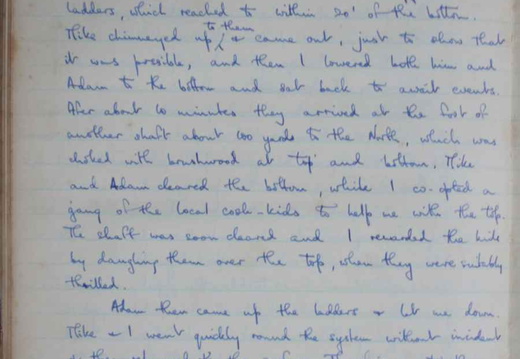 ladders, which reached to within 20' of the bottom.
Mike chimneyed up to them & came out, just to show that
it was possible, and then I lowered both him and
Adam to the bottom and sat back to await events.
After about 10 minutes they arrived at the foot of
another shaft about 100 yards to the North, which was
choked with brushwood at top and bottom. Mike
and Adam cleared the bottom, while I co-opted a
gang of the local cosh-kids to help me with the top.
The shaft was soon cleared and I rewarded the kids
by dangling them over the top, when they were suitably
thrilled.
Adam then came up the ladders & let me down.
Mike & I went quickly round the system without incident